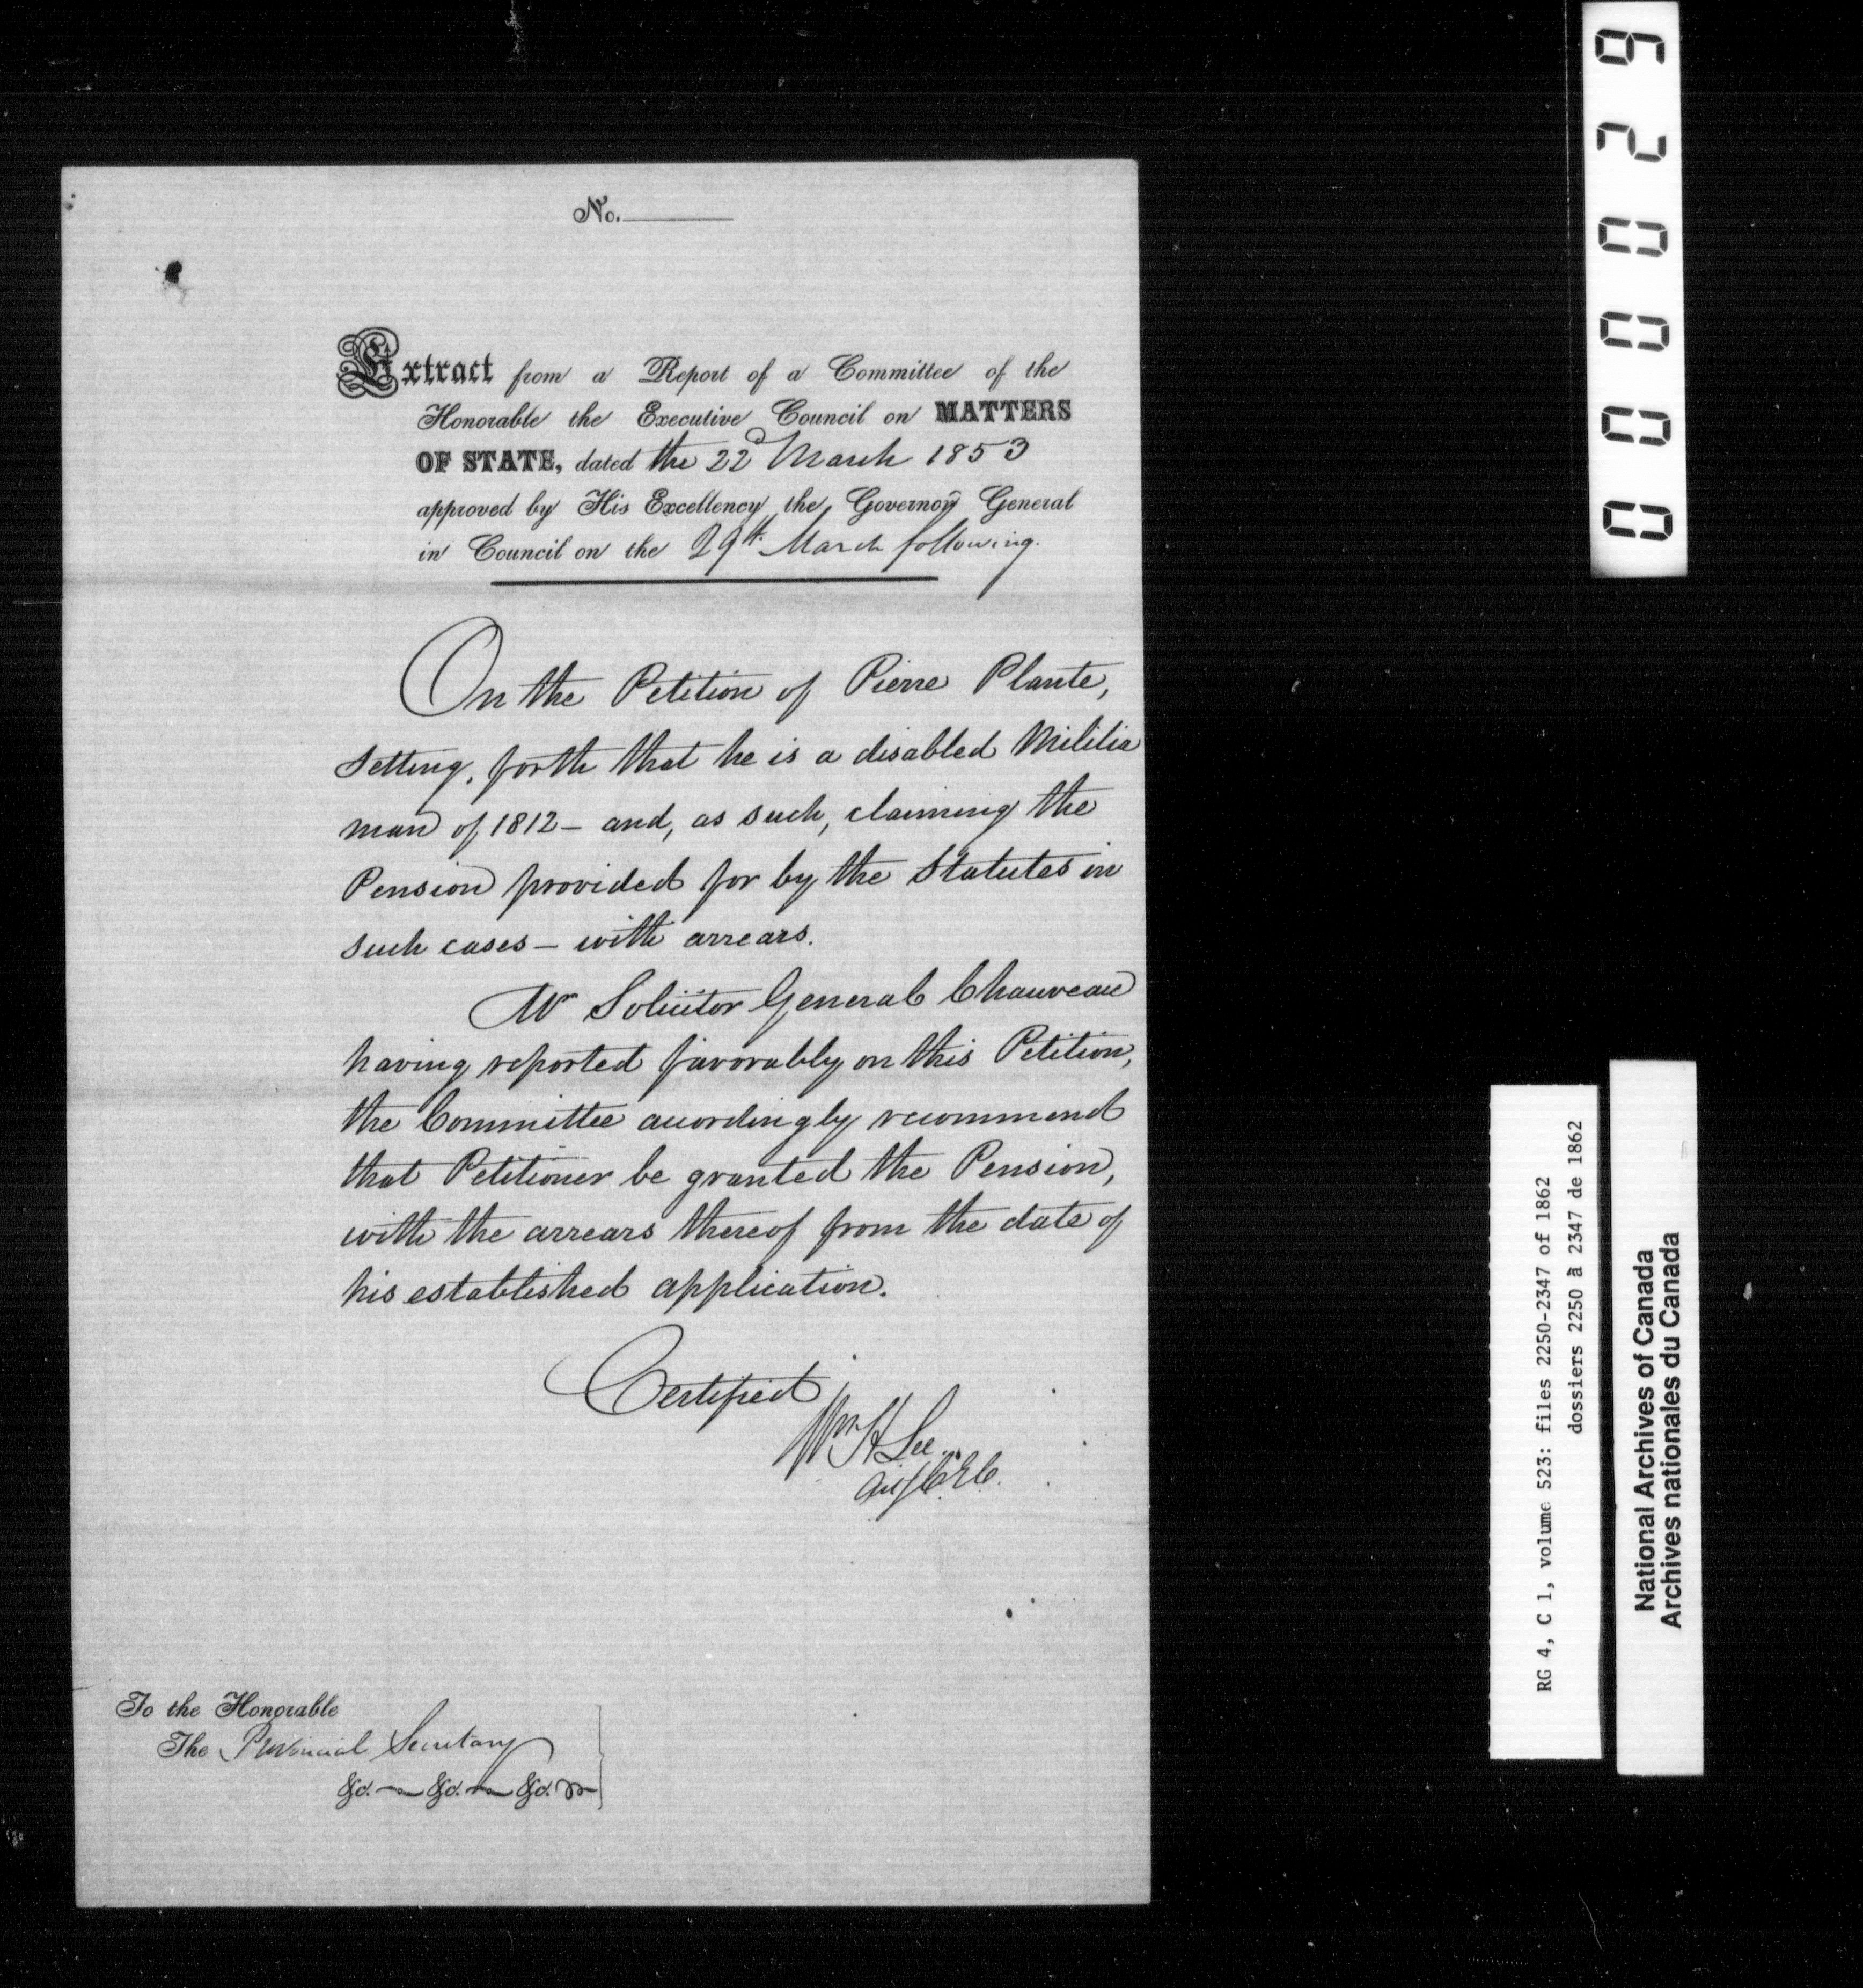 No.
Extract from a Report of a Committee of the
Honorable the Executive Council on MATTERS
OF STATE, dated the 22d March 1853
approved by His Excellency the Governor General
in Council on the 29th March following.
On the Petition of Pierre Plante,
setting forth that he is a disabled Militia
man of 1812 – and, as such, claiming the
Pension provided for by the Statutes in
such cases – with arrears.
Mr Solicitor General Chauveau
having reported favorably on this Petition,
the Committee accordingly recommend
that Petitioner be granted the Pension,
with the arrears thereof from the date of
his established application.
Certified
Wm H Lee
C.E.C.
To the Honorable
The Provincial Secretary
&c. &c. &c.
000029
RG 4, C 1, volume 523: files 2250-2347 of 1862
dossiers 2250 à 2347 de 1862
National Archives of Canada
Archives nationales du Canada